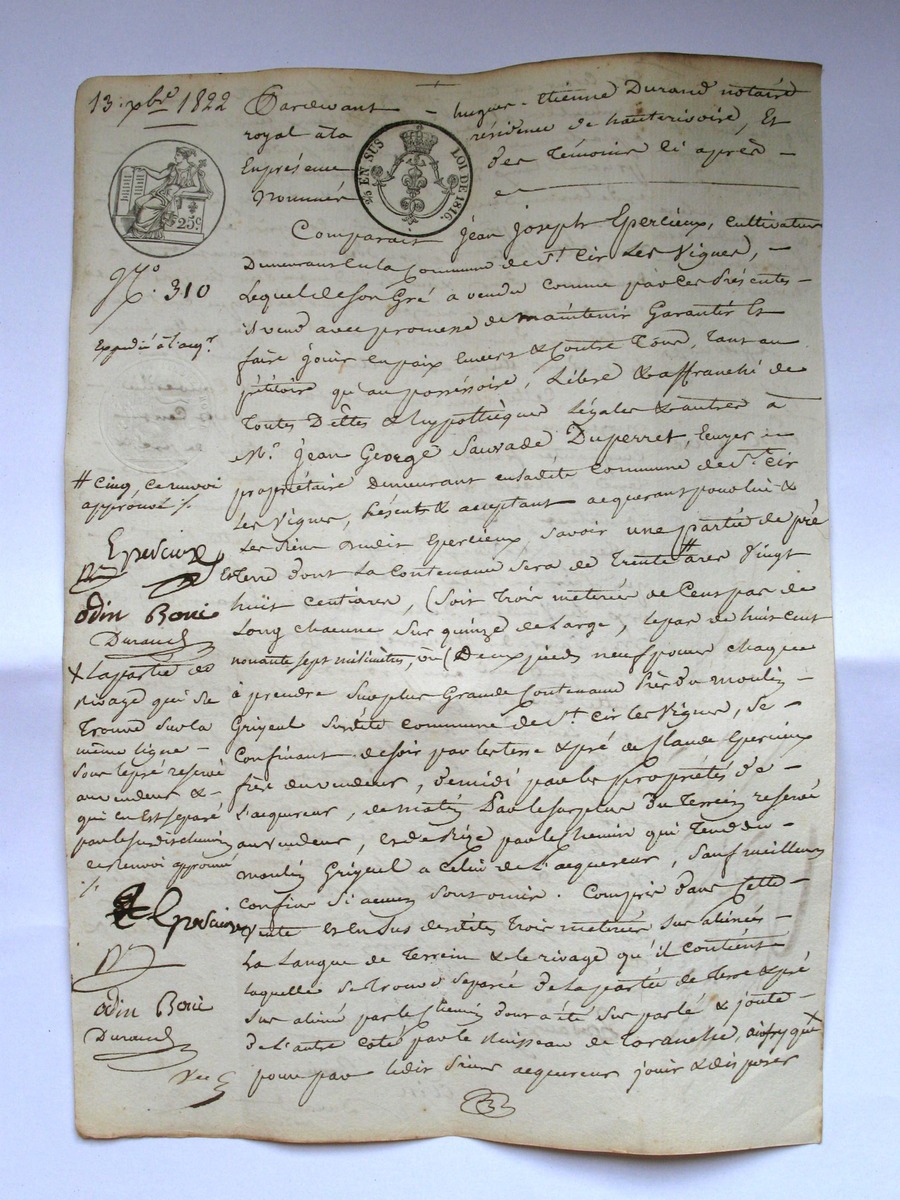 13. xbre 1822
Pardevant - hugues - Etienne Durand notaire
royal à la résidence de hauterivoire, Et
En présence des Témoins ci après -
Nommés
EN SUS LOI DE 1816.
25c.
N.º 310
Expédié à l'aqr.
Comparait Jean Joseph Epercieux, cultivateur
Demeurant En la Commune de St. Cir Les Vignes, -
Lequel de son Gré a vendu comme par Ces Présentes -
Il vend avec promesse de maintenir Garantir Et
faire Jouir en paix Envers & Contre Tous, Tant au
pétitoire qu'au possessoire, Libre & affranchi de
Toutes Dettes & hypothèques Légales & autres à
Mr. Jean George Sauvade Duperret,
propriétaire Demeurant en ladite Commune de St. Cir
Les Vignes, Présent & acceptant acquerant pour lui &
Les siens dudit Epercieux savoir une partie de pré
& terre dont La Contenance sera de Trente # ares Vingt
huit centiares, (Soit Trois meterées de Cent pas de
Long chacune sur quinze de Large, le pas de huit cent
nonante sept milimètres, ou (Deux pieds neuf pouces chaque
à prendre sur plus Grande Contenance Près du moulin -
Grigeul susdite commune de St. Cir les Vignes, se
Confinant de soir par les terre & pré de Claude Epercieux
frère du vendeur, de midi par les propriétés de -
L'acquereur, de matin Par le surplus du Terrein reservé
au vendeur, et de Bize par le chemin qui Tend du -
moulin Grigeul a Celui de L'acquereur, sauf meilleurs
Confins si aucun sont omis. Compris dans Cette -
Vente Et en Sus desdites Trois meterées sus alinées -
La Langue de Terrein & le rivage qu'il contient
laquelle se trouve separée de La partie de terre & pré
sus alinée par le Chemin dont a été sus parlé & joute -
De L'autre coté par le Ruisseau de
pour par ledit sieur acquereur jouir & disposer
# Cinq, ce renvoi
approuvé ./.
Epercieux
odin Boué
Durand
X La partie de
Rivage qui se
Trouve sur la
même ligne -
sous le pré reservé
au vendeur & -
qui En Est separé
par le susdit chemin
ce Renvoi approuvé
./.
Epercieux
odin Boué
Durand